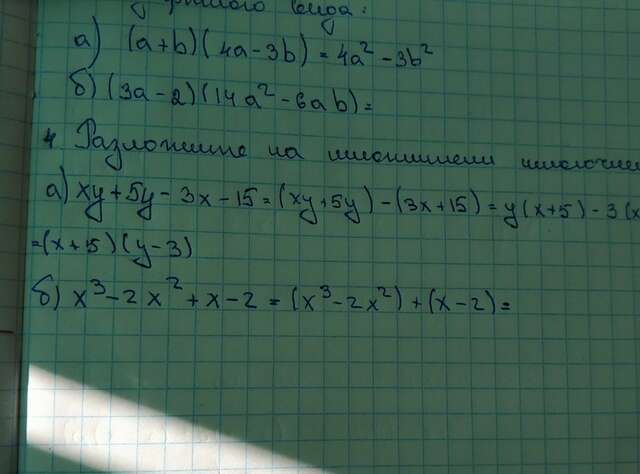 вида:
а) (a+b)(4a-3b)=4a²-3b²
б) (3a-2)(14a²-6ab)=
4 Разложите на множители многочлен
а) xy+5y-3x-15=(xy+5y)-(3x+15)=y(x+5)-3(x
=(x+5)(y-3)
б) x³-2x²+x-2=(x³-2x²)+(x-2)=